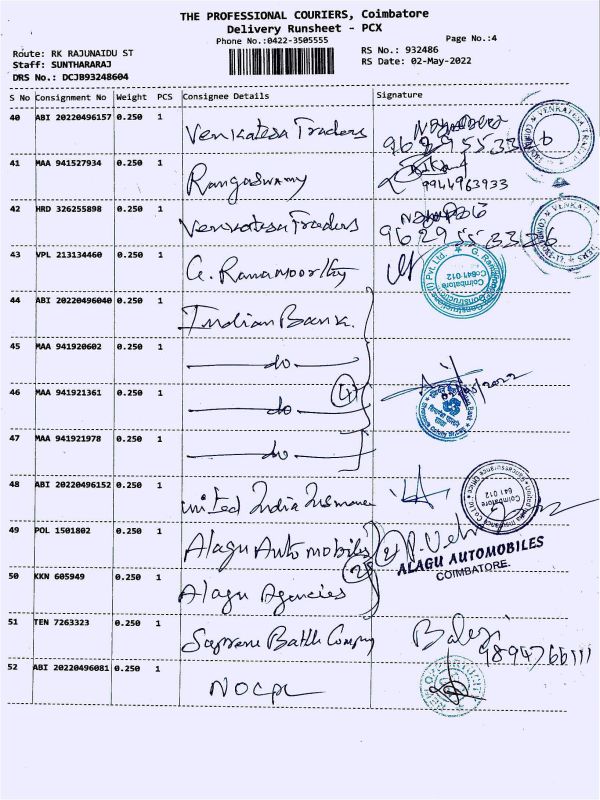 THE PROFESSIONAL COURIERS, Coimbatore
Delivery Runsheet - PCX
Phone No.:0422-3505555
Page No.:4
Route: RK RAJUNAIDU ST
RS No.: 932486
Staff: SUNTHARARAJ
RS Date: 02-May-2022
DRS No.: DCJB93248604
S No Consignment No Weight PCS Consignee Details Signature
40 ABI 20220496157 0.250 1 Venkatesa Traders
VENKATESA
41 MAA 941527934 0.250 1 Rangaswamy
9944963933
42 HRD 326255898 0.250 1 Venkatesa Traders
9629553326
VENKATESA
43 VPL 213134460 0.250 1 G. Ramamoorthy
Constructions (I) Pvt. Ltd.
Coimbatore
641 012
44 ABI 20220496040 0.250 1 Indian Bank.
45 MAA 941920602 0.250 1 do
46 MAA 941921361 0.250 1 do
4
47 MAA 941921978 0.250 1 do
48 ABI 20220496152 0.250 1 United India Insurance
Coimbatore
641 012
49 POL 1501802 0.250 1 Alagu Automobiles
2
ALAGU AUTOMOBILES
COIMBATORE.
50 KKN 605949 0.250 1 Alagu Agencies
51 TEN 7263323 0.250 1 Supreme Battle Company
Balaji
52 ABI 20220496081 0.250 1 NOCPL